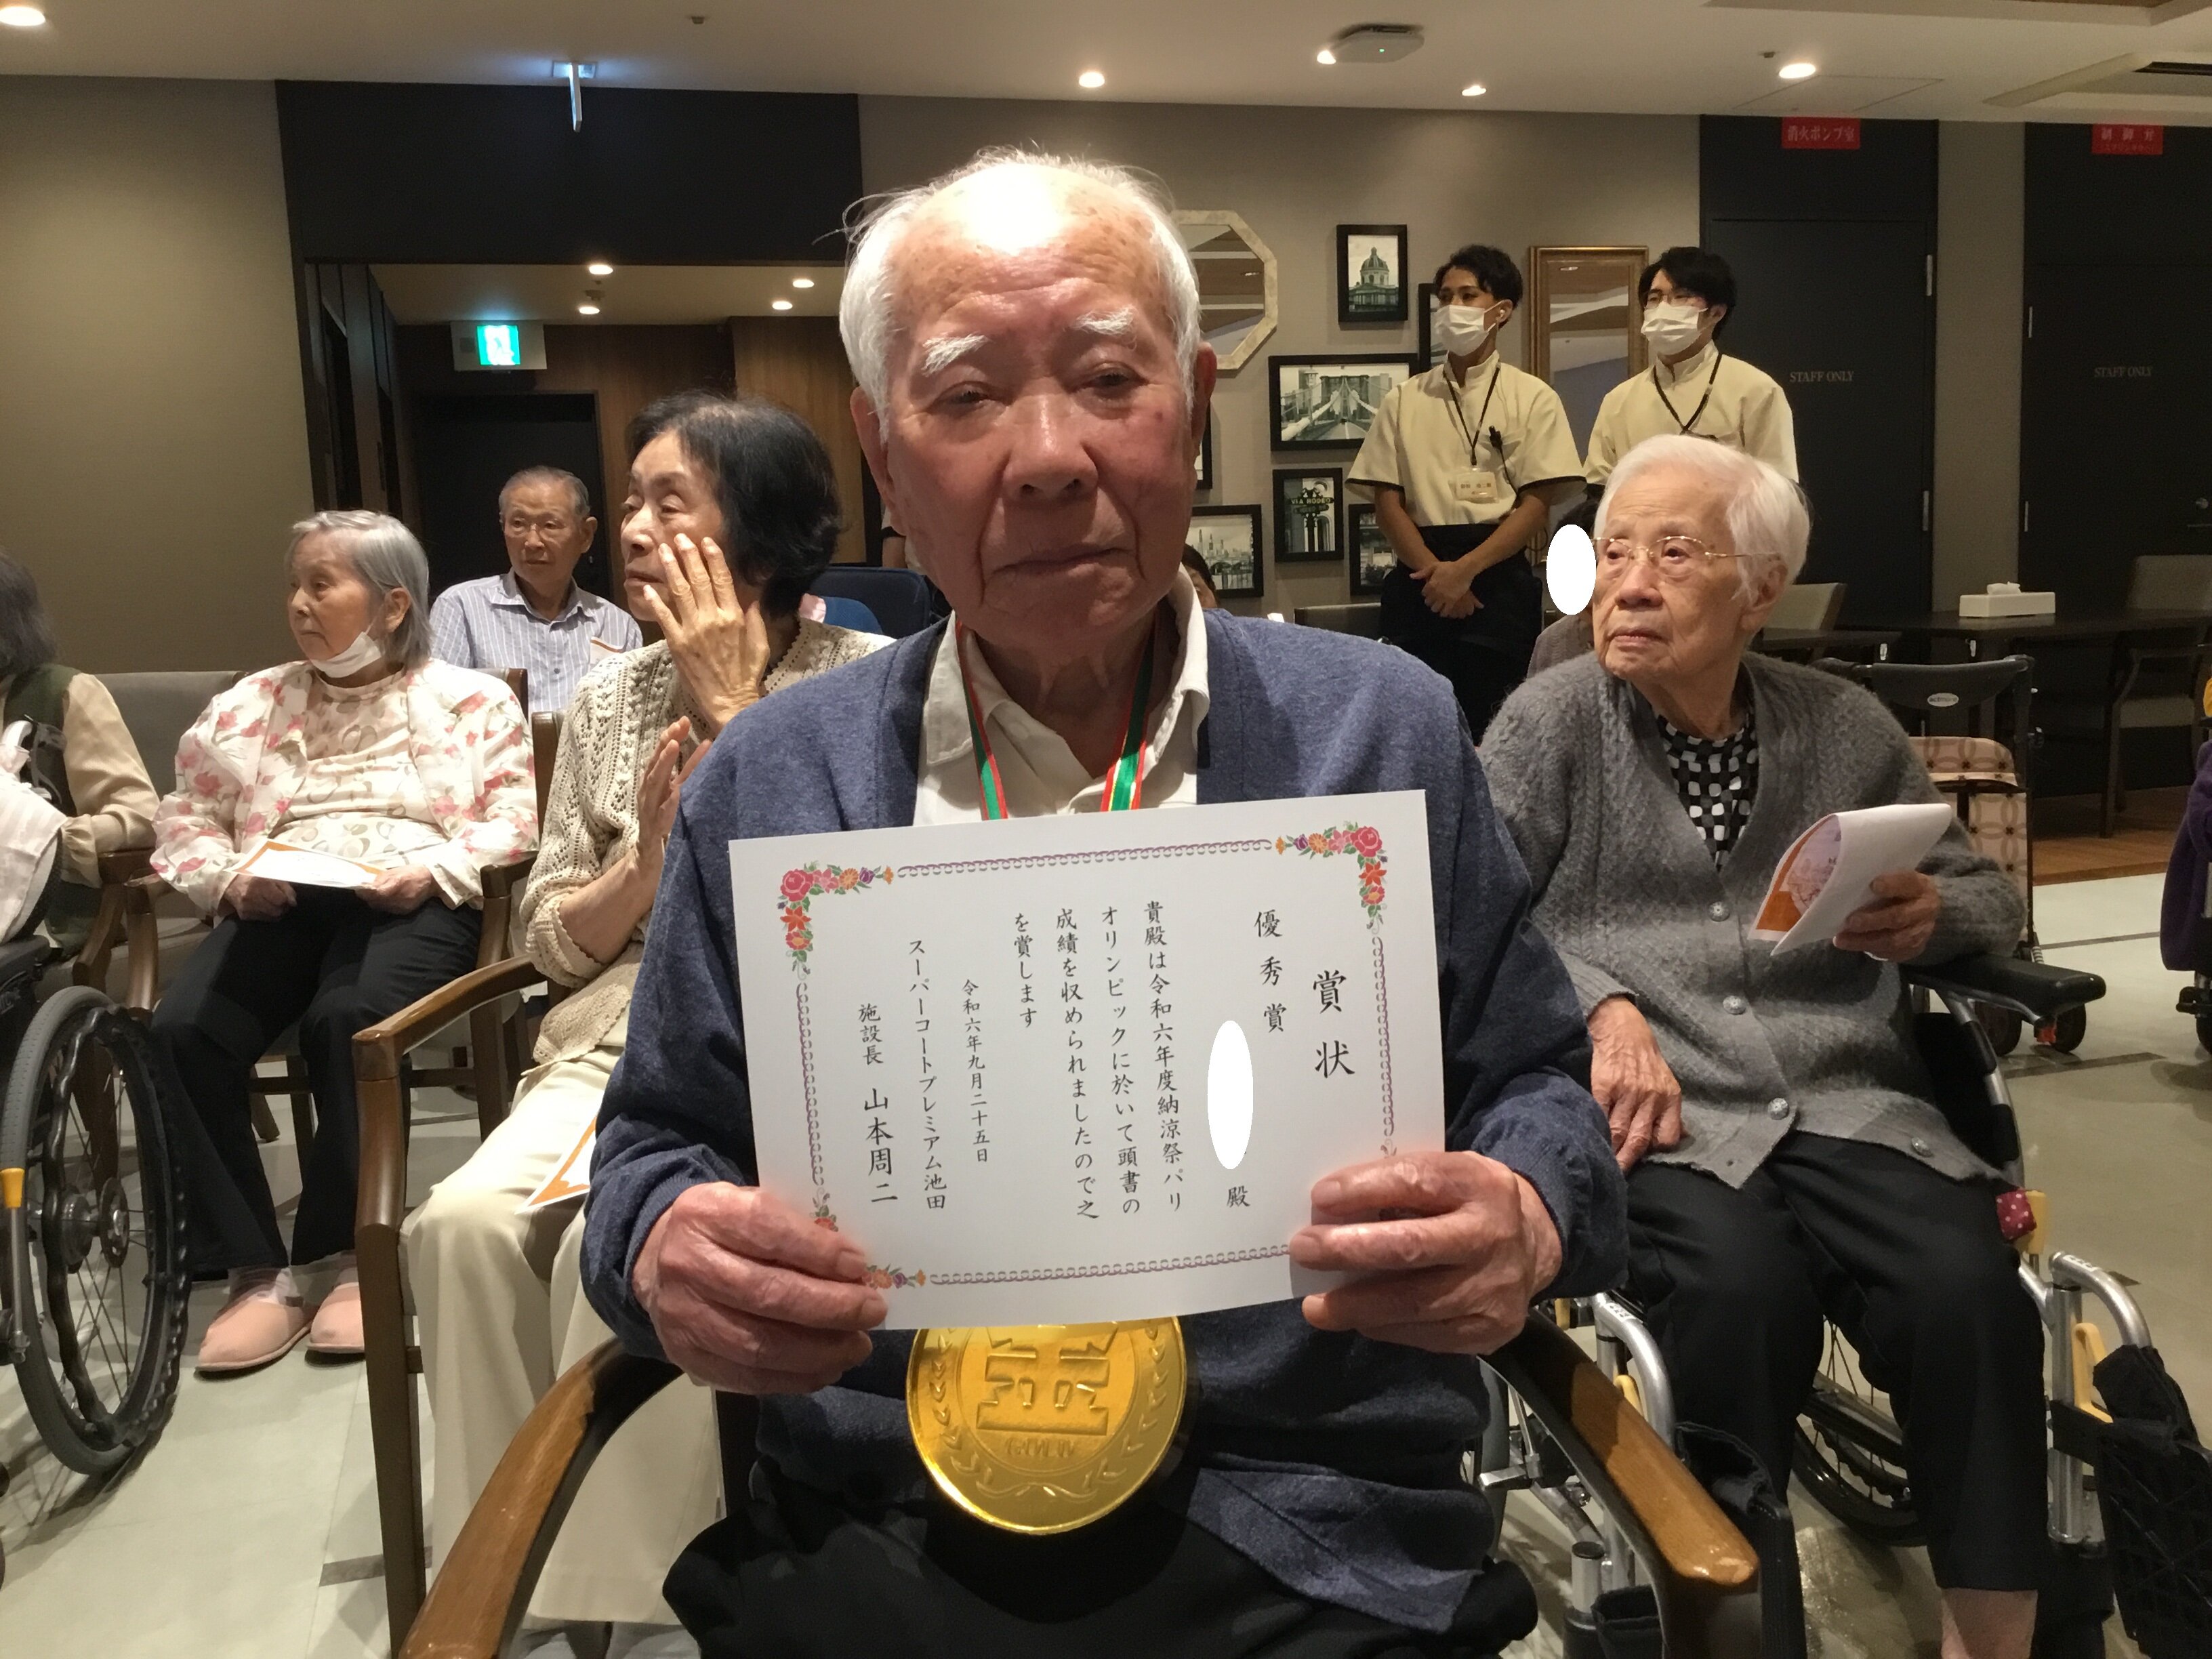 消火ポンプ室
制御弁
STAFF ONLY
STAFF ONLY
VIA RODEO
賞状
優秀賞
殿
貴殿は令和六年度納涼祭パリ
オリンピックに於いて頭書の
成績を収められましたので之
を賞します
令和六年九月二十五日
スーパーコートプレミアム池田
施設長 山本周二
金